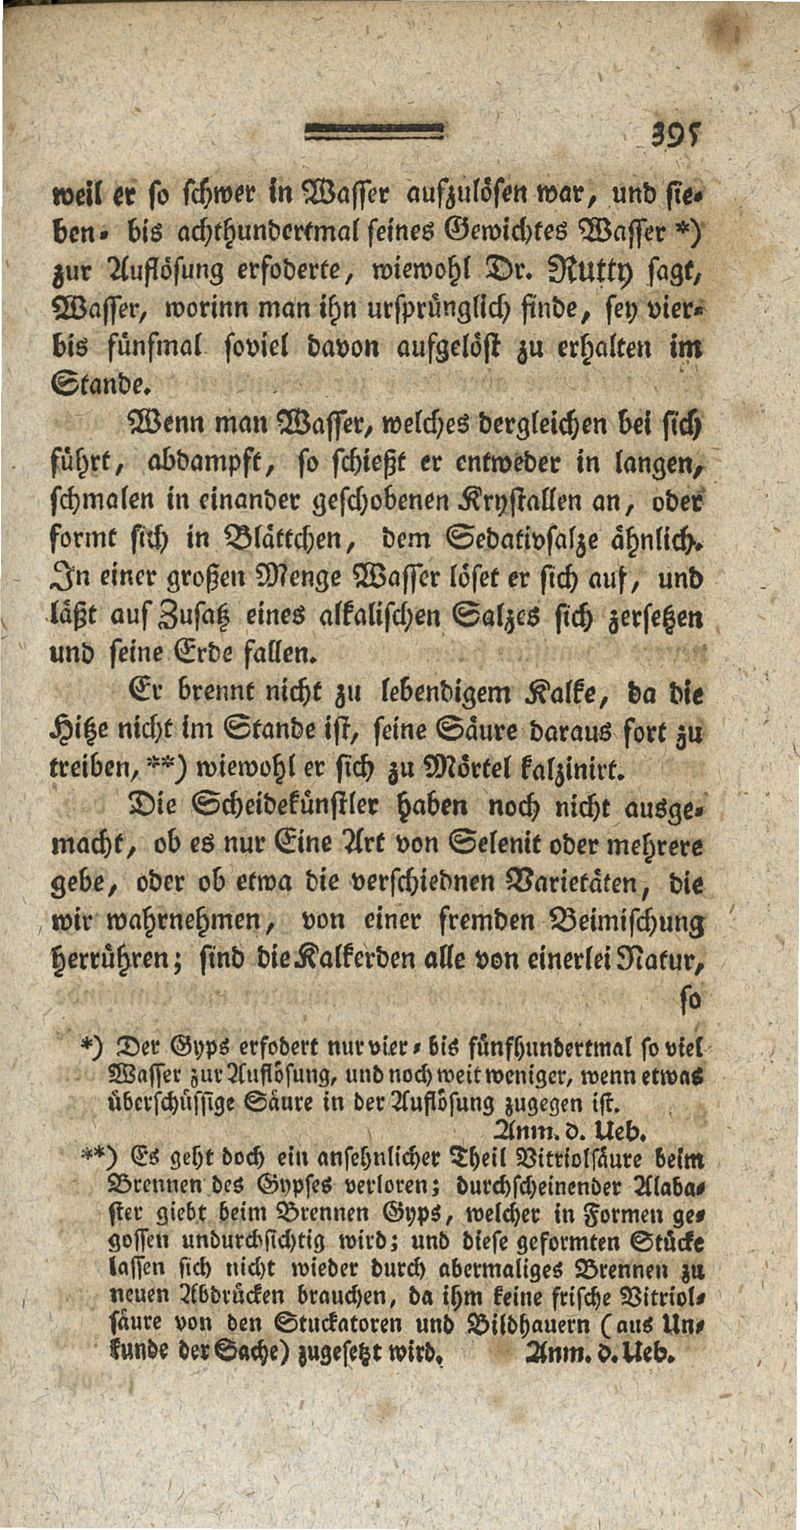 395
weil er so schwer in Wasser aufzulösen war, und sie-
ben- bis achthundertmal seines Gewichtes Wasser *)
zur Auflösung erfoderte, wiewohl Dr. Rutty sagt,
Wasser, worinn man ihn ursprünglich finde, sey vier-
bis fünfmal soviel davon aufgelöst zu erhalten im
Stande.
Wenn man Wasser, welches dergleichen bei sich
führt, abdampft, so schießt er entweder in langen,
schmalen in einander geschobenen Krystallen an, oder
formt sich in Blättchen, dem Sedativsalze ähnlich.
In einer großen Menge Wasser löset er sich auf, und
läßt auf Zusatz eines alkalischen Salzes sich zersetzen
und seine Erde fallen.
Er brennt nicht zu lebendigem Kalke, da die
Hitze nicht im Stande ist, seine Säure daraus fort zu
treiben, **) wiewohl er sich zu Mörtel kalzinirt.
Die Scheidekünstler haben noch nicht ausge-
macht, ob es nur Eine Art von Selenit oder mehrere
gebe, oder ob etwa die verschiednen Varietäten, die
wir wahrnehmen, von einer fremden Beimischung
herrühren; sind die Kalkerden alle von einerlei Natur,
so
*) Der Gyps erfodert nur vier- bis fünfhundertmal so viel
Wasser zur Auflösung, und noch weit weniger, wenn etwas
überschüssige Säure in der Auflösung zugegen ist.
Anm. d. Ueb.
**) Es geht doch ein ansehnlicher Theil Vitriolsäure beim
Brennen des Gypses verloren; durchscheinender Alaba-
ster giebt beim Brennen Gyps, welcher in Formen ge-
gossen undurchsichtig wird; und diese geformten Stücke
lassen sich nicht wieder durch abermaliges Brennen zu
neuen Abdrücken brauchen, da ihm keine frische Vitriol-
säure von den Stuckatoren und Bildhauern (aus Un-
kunde der Sache) zugesetzt wird. Anm. d. Ueb.